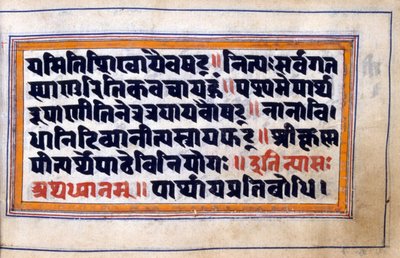 यमितिशिखायैवषट्॥नित्यःसर्वगत
स्थाणुरितिकवचायहुं॥पश्यमेपार्थ
रूपाणीतिनेत्रत्रयायवौषट्॥नानावि
धानिदिव्यानीत्यस्त्रायफट्॥श्रीकृष्ण
प्रीत्यर्थेपाठेविनियोगः॥इतिन्यासः
अथध्यानम्॥पार्थायप्रतिबोधि।